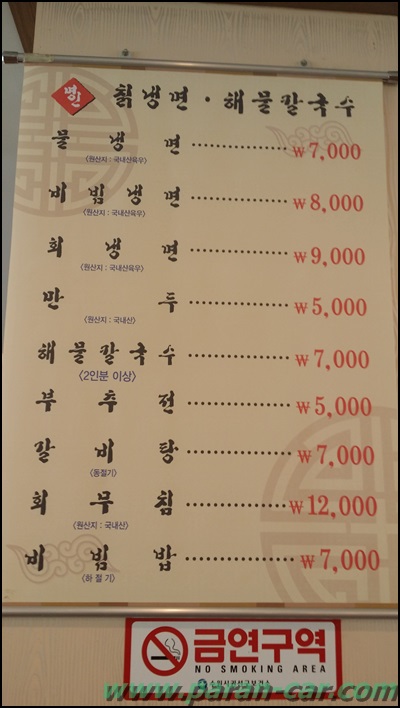 명인 칡냉면 · 해물칼국수
물냉면 ₩7,000
(원산지 : 국내산육우)
비빔냉면 ₩8,000
(원산지 : 국내산육우)
회냉면 ₩9,000
(원산지 : 국내산육우)
만두 ₩5,000
(원산지 : 국내산)
해물칼국수 ₩7,000
(2인분 이상)
부추전 ₩5,000
갈비탕 ₩7,000
(동절기)
회무침 ₩12,000
(원산지 : 국내산)
비빔밥 ₩7,000
(하절기)
금연구역
NO SMOKING AREA
수원시권선구보건소
www.paran-car.com